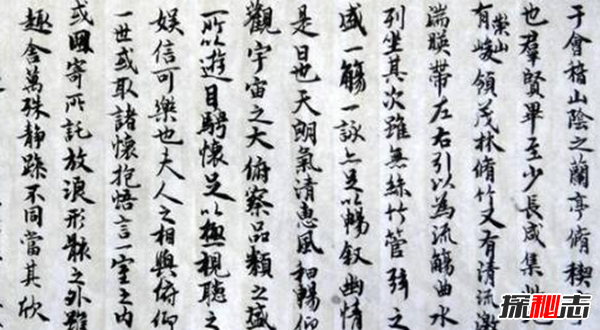 于會稽山陰之蘭亭脩稧
也羣賢畢至少長咸集此
有崇山峻領茂林脩竹又有清流激
湍暎帶左右引以為流觴曲水
列坐其次雖無絲竹管弦之
盛一觴一詠亦足以暢叙幽情
是日也天朗氣清惠風和暢仰
觀宇宙之大俯察品類之盛
所以遊目騁懷足以極視聽之
娛信可樂也夫人之相與俯仰
一世或取諸懷抱悟言一室之内
或因寄所託放浪形骸之外雖
趣舍萬殊静躁不同當其欣
探秘志